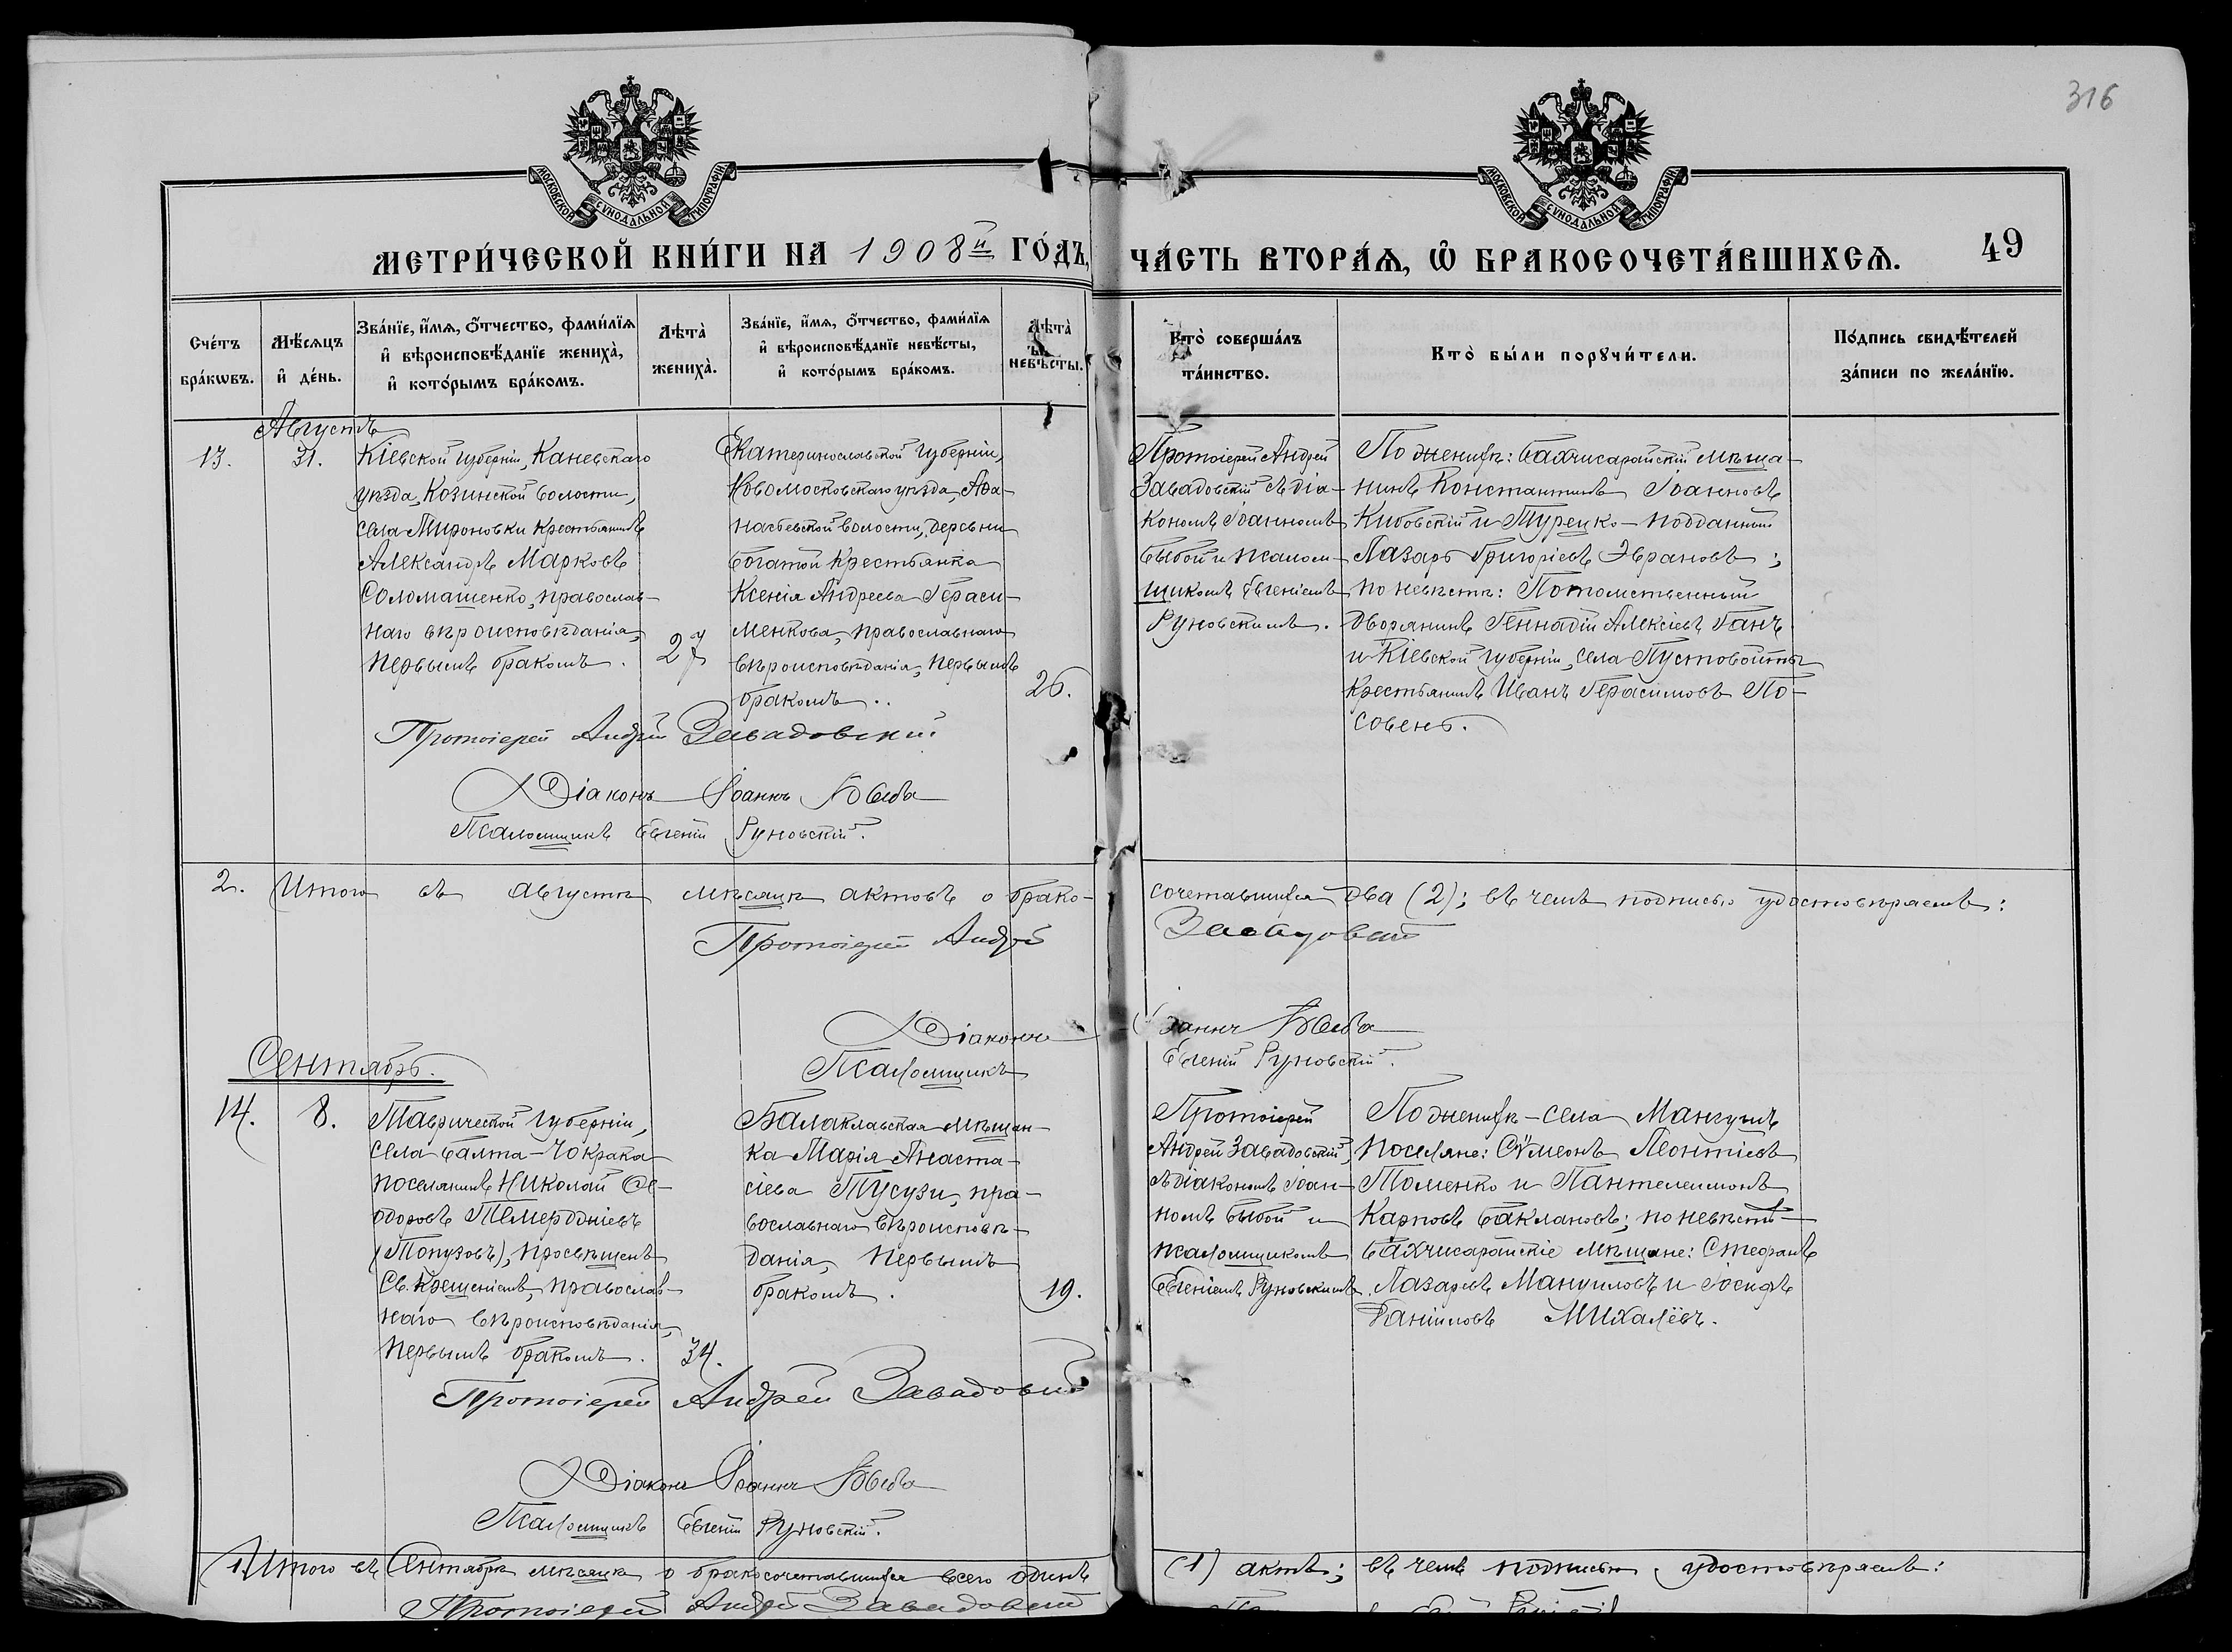 316
МОСКОВСКОЙ СУНОДАЛЬНОЙ ТИПОГРАФІИ
МОСКОВСКОЙ СУНОДАЛЬНОЙ ТИПОГРАФІИ
МЕТРИ́ЧЕСКОЙ КНИ́ГИ НА 1908й ГО́ДЪ,
ЧА́СТЬ ВТОРА́Ѧ, Ѡ҆ БРАКОСОЧЕТА́ВШИХСѦ.
49
Сче́тъ
бра́кѡвъ.
Мѣ́сѧцъ
и҆ де́нь.
Зва́нїе, и҆́мѧ, ѻ҆́тчество, фами́лїѧ
и҆ вѣроисповѣ́данїе жениха̀,
и҆ кото́рымъ бра́комъ.
Лѣта̀
жениха̀.
Зва́нїе, и҆́мѧ, ѻ҆́тчество, фами́лїѧ
и҆ вѣроисповѣ́данїе невѣ́сты,
и҆ кото́рымъ бра́комъ.
Лѣта̀
невѣ́сты.
Кто̀ соверша́лъ
та́инство.
Кто̀ бы́ли порꙋчи́тели.
По́дпись свидѣ́телей
за́писи по жела́нїю.
Августъ
13.
31.
Кіевской губерніи, Каневскаго
уѣзда, Козинской волости,
села Мироновки крестьянинъ
Александръ Марковъ
Соломашенко, православ-
наго вѣроисповѣданія,
первымъ бракомъ.
27
Екатеринославской губерніи,
Новомосковскаго уѣзда, Аѳа-
насьевской волости, деревни
Богатой крестьянка
Ксенія Андреева Гераси-
менкова, православнаго
вѣроисповѣданія, первымъ
бракомъ..
26.
Протоіерей Андрей
Завадовскій съ діа-
кономъ Іоанномъ
и псалом-
щикомъ Евгеніемъ
Руновскимъ.
По женихѣ: бахчисарайскій мѣща-
нинъ Константинъ Іоанновъ
Кибовскій и Турецко-подданный
Лазарь Григорьевъ Эврановъ;
по невѣстѣ: Потомственный
дворянинъ Геннадій Алексіевъ Ганъ
и Кіевской губерніи, села Пустовойты
крестьянинъ Иванъ Герасимовъ По-
совень.
Протоіерей Андрей Завадовскій
Діаконъ Іоаннъ
Псаломщикъ Евгеній Руновскій.
2. Итого въ августѣ мѣсяцѣ актовъ о брако-
сочетавшихся два (2); въ чемъ подписью удостовѣряемъ:
Протоіерей Андрей
Завадовскій
Діаконъ
Іоаннъ
Псаломщикъ
Евгеній Руновскій.
Сентябрь.
14.
8.
Таврической губерніи,
села Балта-Чокрака
поселянинъ Николай Ѳе-
одоровъ Темерджіевъ
(Топузовъ), просвѣщенъ
Св. Крещеніемъ, православ-
наго вѣроисповѣданія,
первымъ бракомъ.
34.
Балаклавская мѣщан-
ка Марія Анаста-
сіева Тусузи, пра-
вославнаго вѣроисповѣ-
данія, первымъ
бракомъ.
19.
Протоіерей
Андрей Завадовскій,
съ діакономъ Іоан-
номъ и
псаломщикомъ
Евгеніемъ Руновскимъ.
По женихѣ – села Мангушъ
поселяне: Сѵмеонъ Леонтіевъ
Томенко и Пантелеимонъ
Карповъ Баклановъ; по невѣстѣ –
Бахчисарайскіе мѣщане: Стефанъ
Лазаревъ Мануиловъ и Іосифъ
Даніиловъ Михалёвъ.
Протоіерей Андрей Завадовскій
Діаконъ Іоаннъ
Псаломщикъ Евгеній Руновскій.
1. Итого въ Сентябрѣ мѣсяцѣ о бракосочетавшихся всего одинъ
(1) актъ; въ чемъ подписью удостовѣряемъ:
Протоіерей Андрей Завадовскій